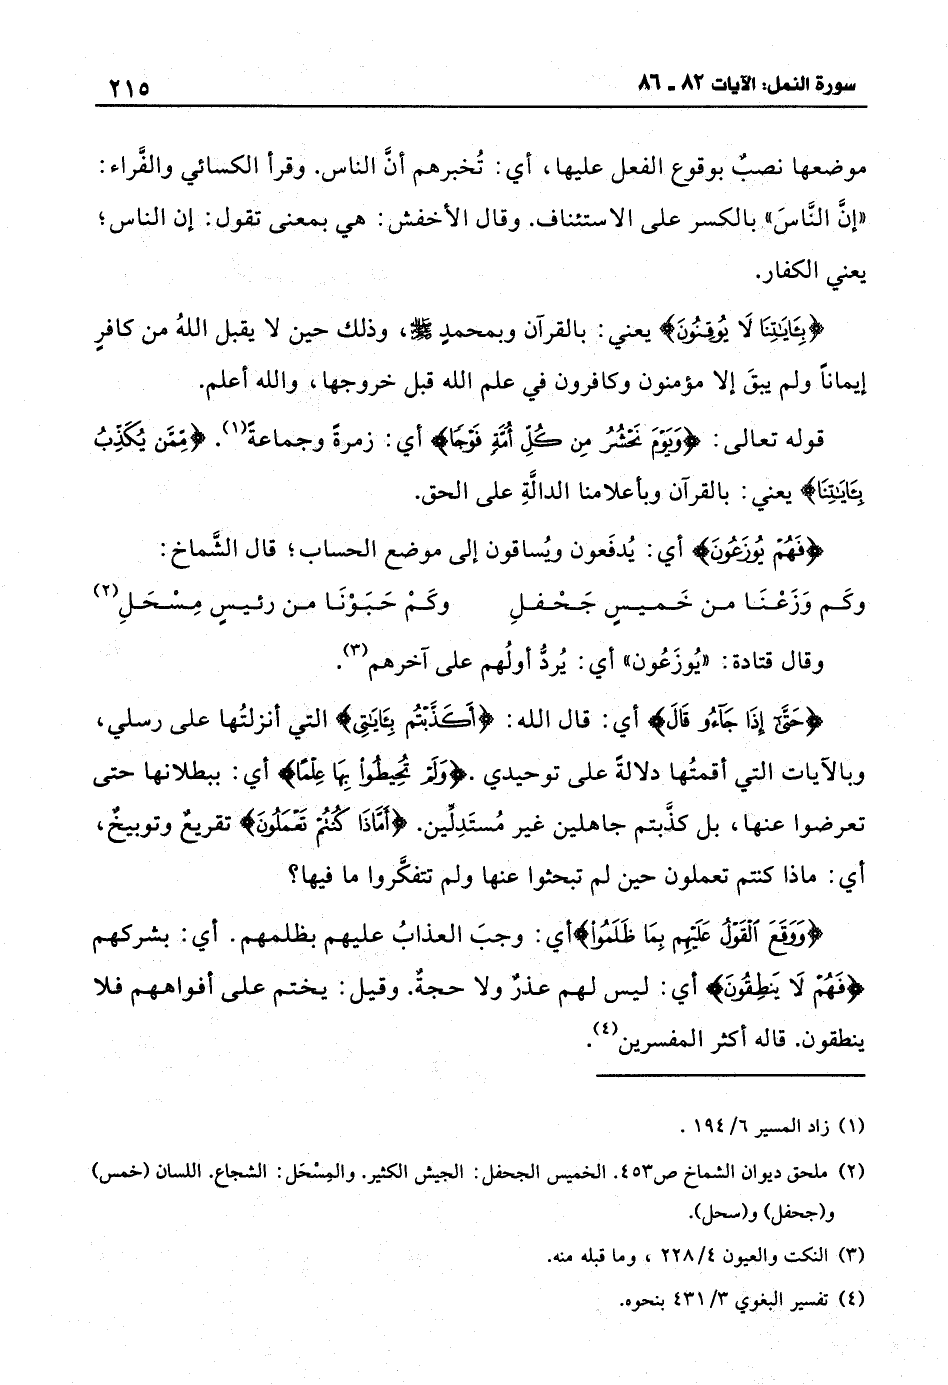 سورة النمل: الآيات ٨٢ - ٨٦
٢١٥
موضعها نصبٌ بوقوع الفعل عليها، أي: تُخبرهم أنَّ الناس. وقرأ الكسائي والفَّراء:
«إنَّ النَّاسَ» بالكسر على الاستئناف. وقال الأخفش: هي بمعنى تقول: إن الناس؛
يعني الكفار.
﴿بِـَٔايَـٰتِنَا لَا يُوقِنُونَ﴾ يعني: بالقرآن وبمحمدٍ ﷺ، وذلك حين لا يقبل اللهُ من كافرٍ
إيماناً ولم يبقَ إلا مؤمنون وكافرون في علم الله قبل خروجها، والله أعلم.
قوله تعالى: ﴿وَيَوْمَ نَحْشُرُ مِن كُلِّ أُمَّةٍ فَوْجًا﴾ أي: زمرةً وجماعةً(١). ﴿مِّمَّن يُكَذِّبُ
بِـَٔايَـٰتِنَا﴾ يعني: بالقرآن وبأعلامنا الدالَّةِ على الحق.
﴿فَهُمْ يُوزَعُونَ﴾ أي: يُدفَعون ويُساقون إلى موضع الحساب؛ قال الشَّماخ:
وكَـم وَزَعْـنَـا مـن خَـمـيـسٍ جَـحْـفـلِ وكَـمْ حَـبَـوْنَـا مـن رئـيـسٍ مِـسْـحَـلِ(٢)
وقال قتادة: «يُوزَعُون» أي: يُردُّ أولُهم على آخرهم(٣).
﴿حَتَّىٰٓ إِذَا جَآءُو قَالَ﴾ أي: قال الله: ﴿أَكَذَّبْتُم بِـَٔايَـٰتِى﴾ التي أنزلتُها على رسلي،
وبالآيات التي أقمتُها دلالةً على توحيدي. ﴿وَلَمْ تُحِيطُوا۟ بِهَا عِلْمًا﴾ أي: ببطلانها حتى
تعرضوا عنها، بل كذَّبتم جاهلين غير مُستَدِلِّين. ﴿أَمَّاذَا كُنتُمْ تَعْمَلُونَ﴾ تقريعٌ وتوبيخٌ،
أي: ماذا كنتم تعملون حين لم تبحثوا عنها ولم تتفكَّروا ما فيها؟
﴿وَوَقَعَ ٱلْقَوْلُ عَلَيْهِم بِمَا ظَلَمُوا۟﴾أي: وجبَ العذابُ عليهم بظلمهم. أي: بشركهم
﴿فَهُمْ لَا يَنطِقُونَ﴾ أي: ليس لهم عذرٌ ولا حجةٌ. وقيل: يختم على أفواههم فلا
ينطقون. قاله أكثر المفسرين(٤).
(١) زاد المسير ٦/ ١٩٤ .
(٢) ملحق ديوان الشماخ ص٤٥٣. الخميس الجحفل: الجيش الكثير. والمِسْحَل: الشجاع. اللسان (خمس)
و(جحفل) و(سحل).
(٣) النكت والعيون ٤/ ٢٢٨ ، وما قبله منه.
(٤) تفسير البغوي ٣/ ٤٣١ بنحوه.